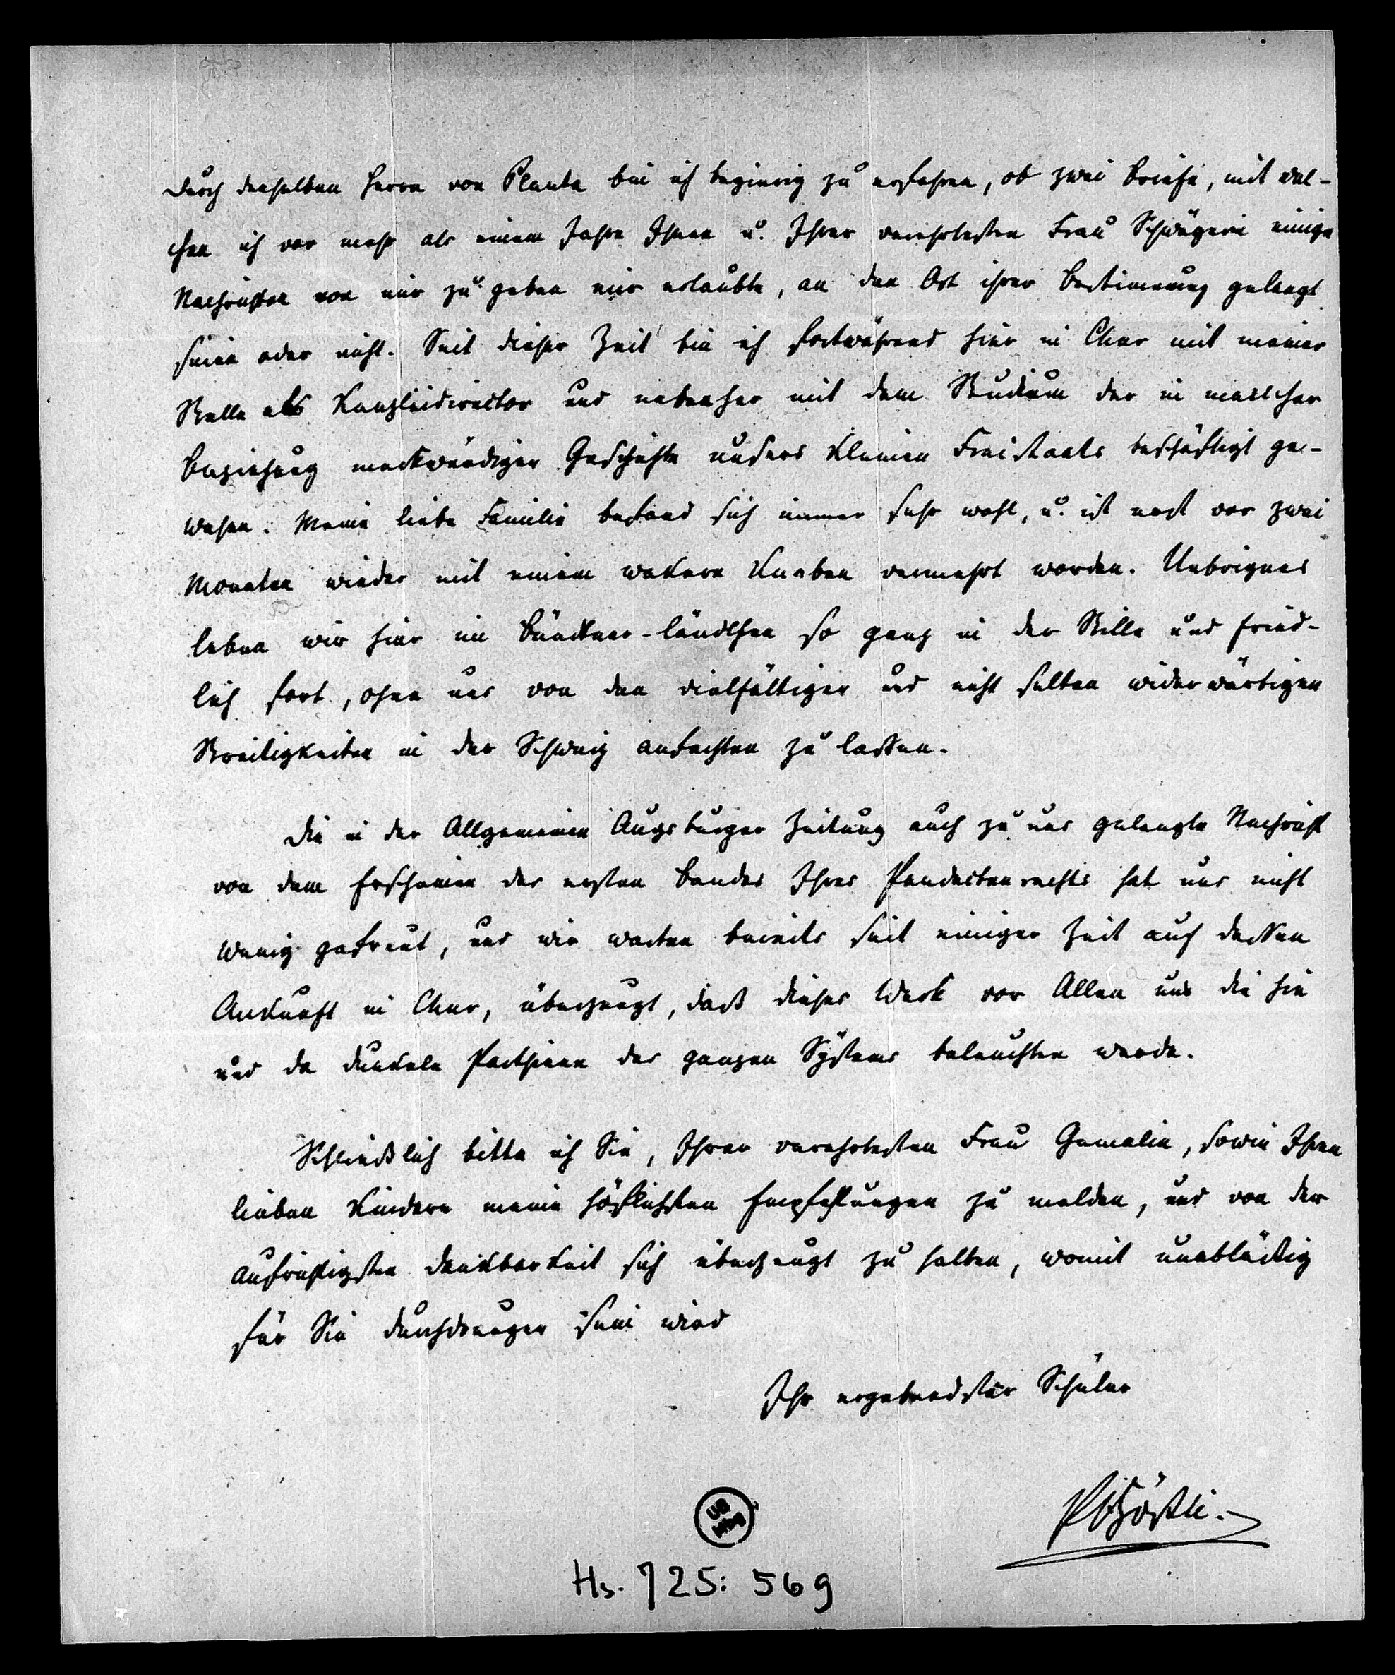 durch denselben Herrn von Planta bin ich begierig zu erfahren, ob zwei Briefe, mit wel-
chen ich vor mehr als einem Jahre Ihnen u. Ihrer verehrtesten Frau Schwägerin einige
Nachrichten von mir zu geben mir erlaubte, an den Ort ihrer Bestimmung gelangt
seien oder nicht. Seit dieser Zeit bin ich fortwährend hier in Chur mit meiner
Stelle als Kanzleidirector und nebenher mit dem Studium der in mancher
Beziehung merkwürdigen Geschichte unsers kleinen Freistaats beschäftigt ge-
wesen. Meine liebe Familie befand sich immer sehr wohl, u. ist erst vor zwei
Monaten wieder mit einem wakern Knaben vermehrt worden. Uebrigens
leben wir hier im Bündtner-ländchen so ganz in der Stille und fried-
lich fort, ohne uns von den vielfältigen und nicht selten widerwärtigen
Streitigkeiten in der Schweiz anfechten zu lassen.
Die in der Allgemeinen Augsburger Zeitung auch zu uns gelangte Nachricht
von dem Erscheinen des ersten Bandes Ihres Pandectenrechts hat uns nicht
wenig gefreut, und wir warten bereits seit einiger Zeit auf dessen
Ankunft in Chur, überzeugt, daß dieses Werk vor Allen uns die hie
und da dunkeln Parthieen des ganzen Systems beleuchten werde.
Schließlich bitte ich Sie, Ihrer verehrtesten Frau Gemalin, sowie Ihren
lieben Kindern meine höflichsten Empfehlungen zu melden, und von der
aufrichtigsten Dankbarkeit sich überzeugt zu halten, womit unabläßig
für Sie durchdrungen sein wird
Ihr ergebendster Schüler
Hs. 725: 569